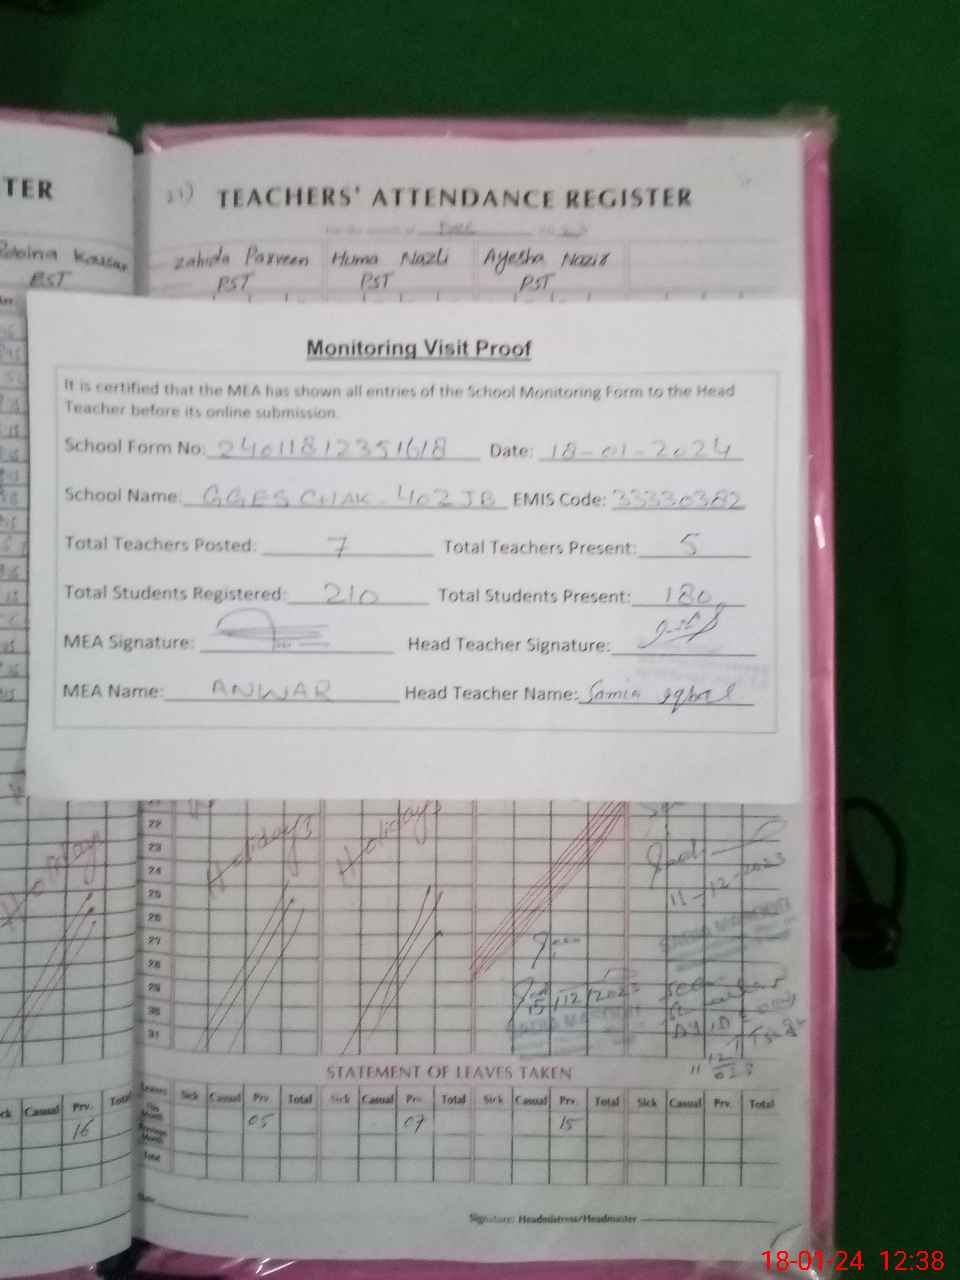 TER
Robina Kausar
PST
21)
TEACHERS' ATTENDANCE REGISTER
For the month of
Zahida Parveen Huma Nazli Ayesha Nazir
PST PST PST
Monitoring Visit Proof
It is certified that the MEA has shown all entries of the School Monitoring Form to the Head
Teacher before its online submission.
School Form No: 24011812351618 Date: 18-01-2024
School Name: GGES CHAK. 402 JB EMIS Code: 33330382
Total Teachers Posted: 7 Total Teachers Present: 5
Total Students Registered: 210 Total Students Present: 180
MEA Signature: Head Teacher Signature:
MEA Name: ANWAR Head Teacher Name: Samia Iqbal
22
23
24
25
26
27
28
29
30
31
Holidays
Holidays
Holidays
11-12-2023
15/12/2023
STATEMENT OF LEAVES TAKEN
Casual Prv. Total
16
Leaves Sick Casual Prv. Total Sick Casual Prv. Total Sick Casual Prv. Total Sick Casual Prv. Total
This Month 05 07 15
Previous Month
Total
Date
Signature: Headmistress/Headmaster
18-01-24 12:38